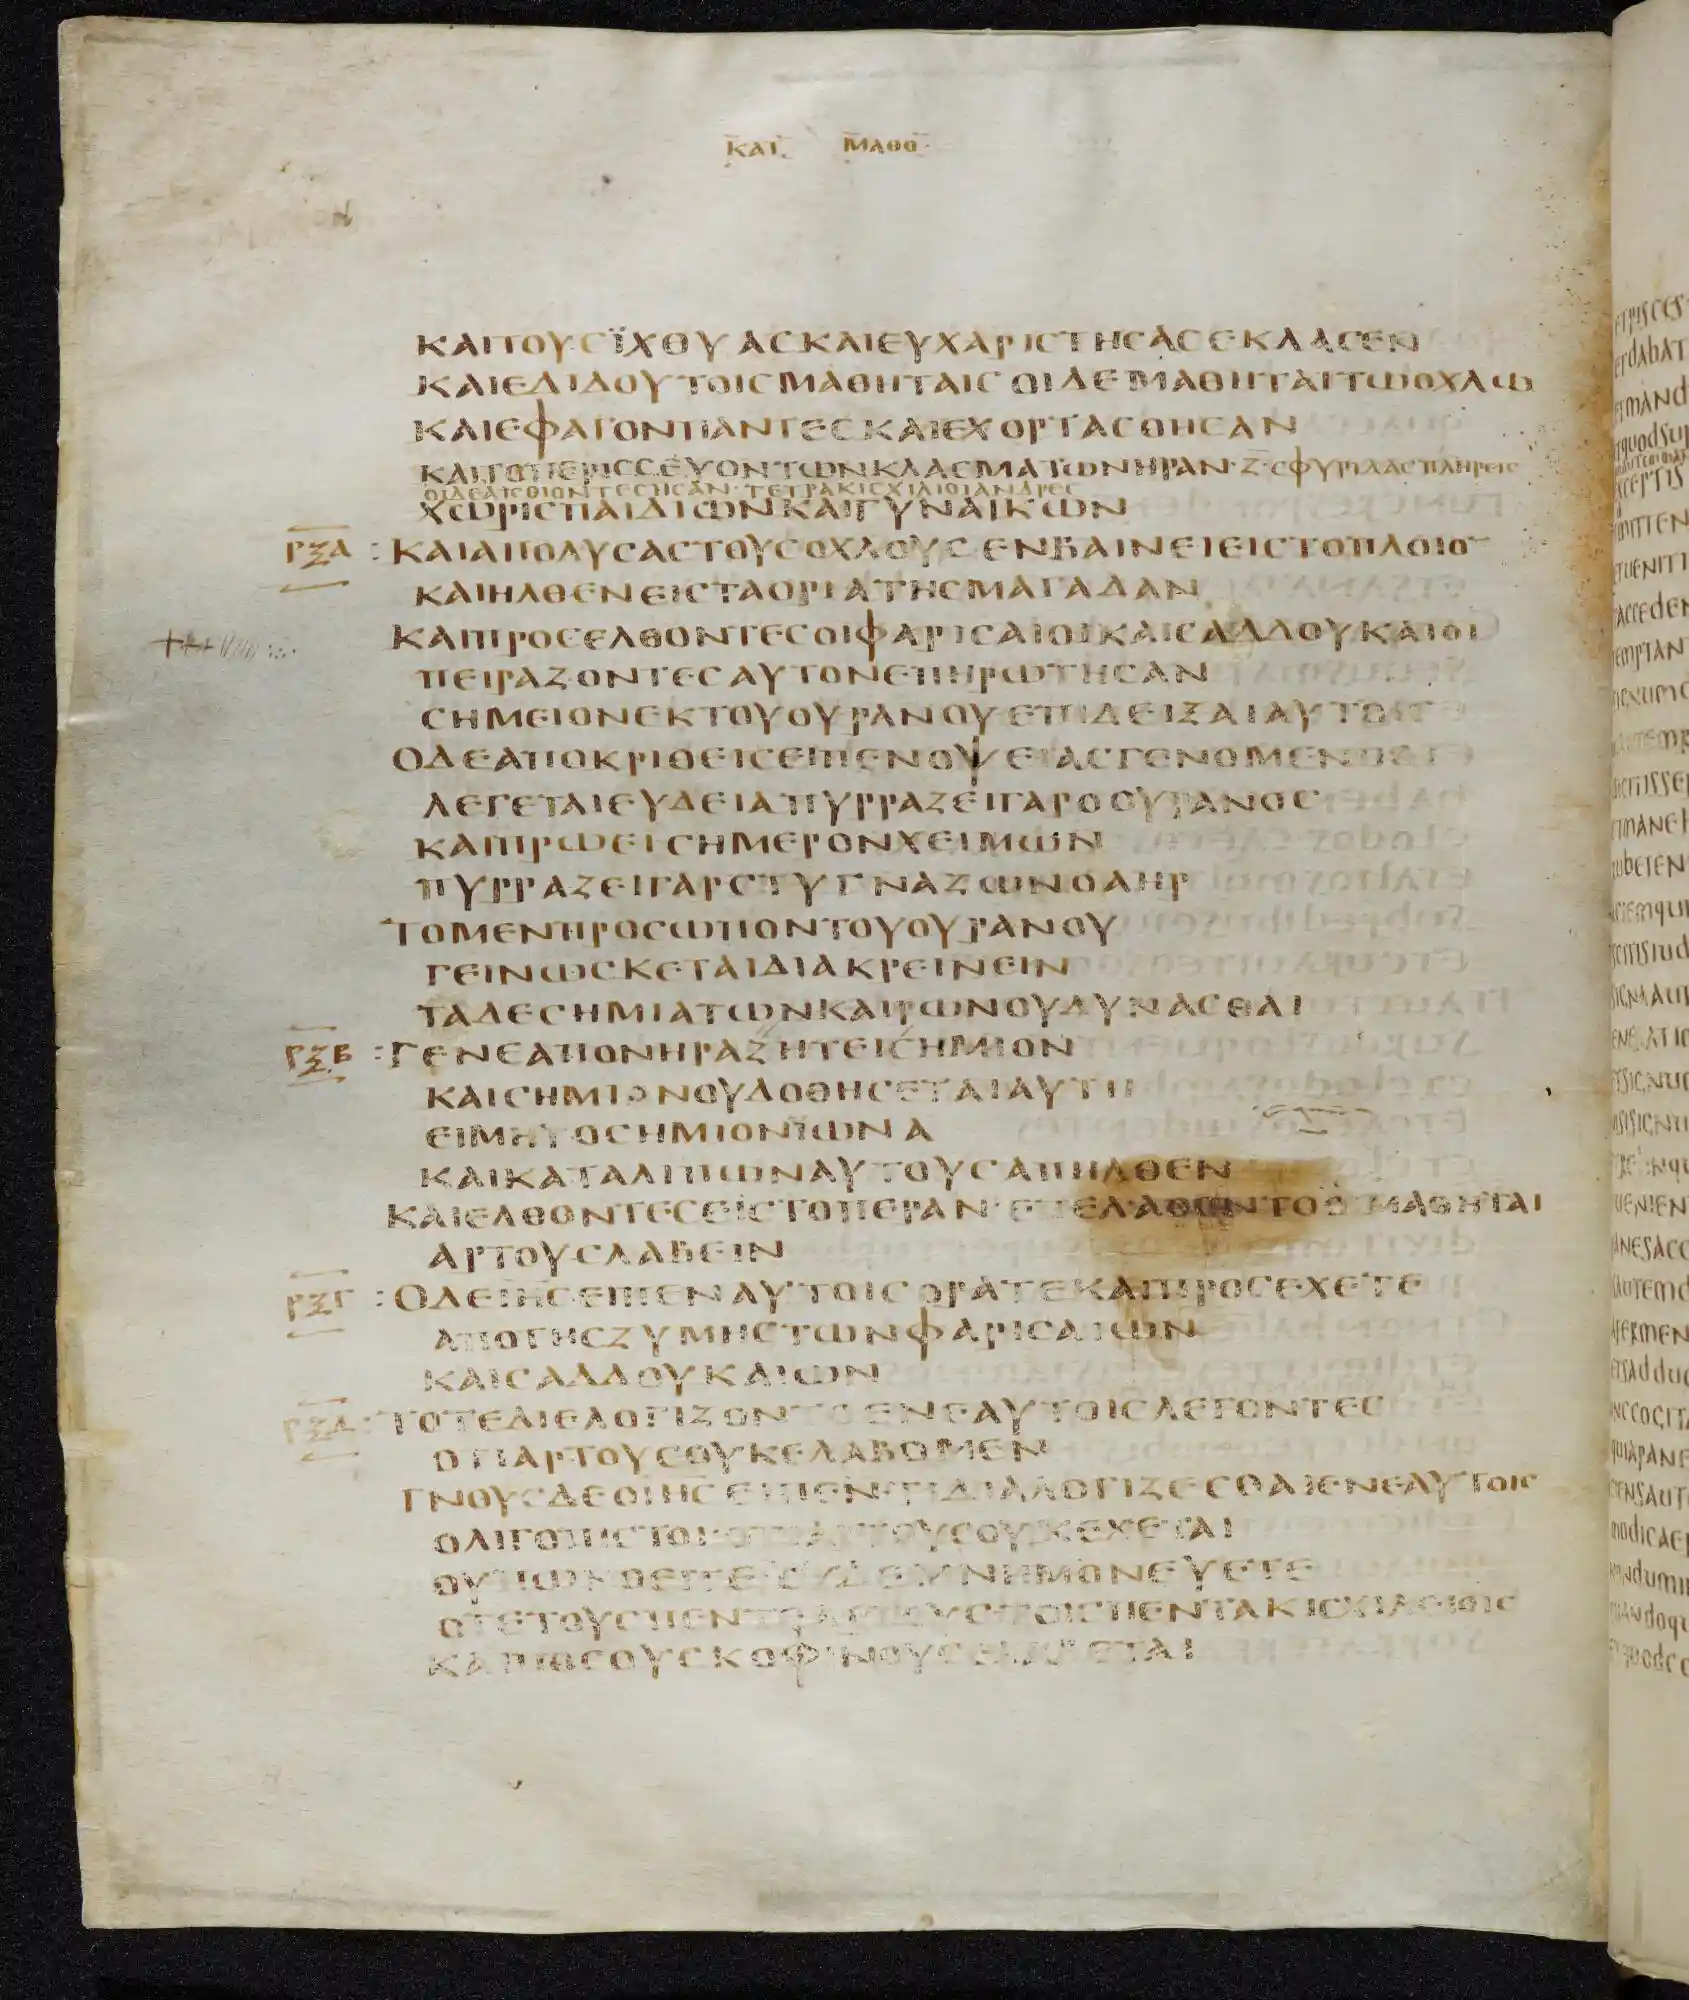 ΚΑΤ ΜΑΘΘ
ΚΑΙΤΟΥΣΪΧΘΥΑΣΚΑΙΕΥΧΑΡΙΣΤΗΣΑΣΕΚΛΑΣΕΝ
ΚΑΙΕΔΙΔΟΥΤΟΙΣΜΑΘΗΤΑΙΣΟΙΔΕΜΑΘΗΤΑΙΤΩΟΧΛΩ
ΚΑΙΕΦΑΓΟΝΠΑΝΤΕΣΚΑΙΕΧΟΡΤΑΣΘΗΣΑΝ
ΚΑΙΤΟΠΕΡΙΣΣΕΥΟΝΤΩΝΚΛΑΣΜΑΤΩΝΗΡΑΝ·Ζ·ΣΦΥΡΙΔΑΣΠΛΗΡΕΙΣ
ΟΙΔΕΑΙΣΘΙΟΝΤΕΣΗΣΑΝ·ΤΕΤΡΑΚΙΣΧΙΛΙΟΙΑΝΔΡΕΣ
ΧΩΡΙΣΠΑΙΔΙΩΝΚΑΙΓΥΝΑΙΚΩΝ
ΡΞΑ : ΚΑΙΑΠΟΛΥΣΑΣΤΟΥΣΟΧΛΟΥΣΕΝΒΑΙΝΕΙΕΙΣΤΟΠΛΟΙΟ
ΚΑΙΗΛΘΕΝΕΙΣΤΑΟΡΙΑΤΗΣΜΑΓΑΔΑΝ
ΚΑΙΠΡΟΣΕΛΘΟΝΤΕΣΟΙΦΑΡΙΣΑΙΟΙΚΑΙΣΑΔΔΟΥΚΑΙΟΙ
ΠΕΙΡΑΖΟΝΤΕΣΑΥΤΟΝΕΠΗΡΩΤΗΣΑΝ
ΣΗΜΕΙΟΝΕΚΤΟΥΟΥΡΑΝΟΥΕΠΙΔΕΙΞΑΙΑΥΤΟΙΣ
ΟΔΕΑΠΟΚΡΙΘΕΙΣΕΙΠΕΝΟΨΕΙΑΣΓΕΝΟΜΕΝΗΣ
ΛΕΓΕΤΑΙΕΥΔΕΙΑΠΥΡΡΑΖΕΙΓΑΡΟΟΥΡΑΝΟΣ
ΚΑΙΠΡΩΕΙΣΗΜΕΡΟΝΧΕΙΜΩΝ
ΠΥΡΡΑΖΕΙΓΑΡΣΤΥΓΝΑΖΩΝΟΑΗΡ
ΤΟΜΕΝΠΡΟΣΩΠΟΝΤΟΥΟΥΡΑΝΟΥ
ΓΕΙΝΩΣΚΕΤΑΙΔΙΑΚΡΕΙΝΕΙΝ
ΤΑΔΕΣΗΜΙΑΤΩΝΚΑΙΡΩΝΟΥΔΥΝΑΣΘΑΙ
ΡΞΒ : ΓΕΝΕΑΠΟΝΗΡΑΖΗΤΕΙΣΗΜΙΟΝ
ΚΑΙΣΗΜΙΟΝΟΥΔΟΘΗΣΕΤΑΙΑΥΤΗ
ΕΙΜΗΤΟΣΗΜΙΟΝΪΩΝΑ
ΚΑΙΚΑΤΑΛΙΠΩΝΑΥΤΟΥΣΑΠΗΛΘΕΝ
ΚΑΙΕΛΘΟΝΤΕΣΕΙΣΤΟΠΕΡΑΝ·ΕΠΕΛΑΘΟΝΤΟΟΙΜΑΘΗΤΑΙ
ΑΡΤΟΥΣΛΑΒΕΙΝ
ΡΞΓ : ΟΔΕΙΗΣΕΙΠΕΝΑΥΤΟΙΣΟΡΑΤΕΚΑΙΠΡΟΣΕΧΕΤΕ
ΑΠΟΤΗΣΖΥΜΗΣΤΩΝΦΑΡΙΣΑΙΩΝ
ΚΑΙΣΑΔΔΟΥΚΑΙΩΝ
ΡΞΔ : ΤΟΤΕΔΙΕΛΟΓΙΖΟΝΤΟΕΝΕΑΥΤΟΙΣΛΕΓΟΝΤΕΣ
ΟΤΙΑΡΤΟΥΣΟΥΚΕΛΑΒΟΜΕΝ
ΓΝΟΥΣΔΕΟΙΗΣΕΙΠΕΝ·ΤΙΔΙΑΛΟΓΙΖΕΣΘΑΙΕΝΕΑΥΤΟΙΣ
ΟΛΙΓΟΠΙΣΤΟΙΟΤΙΑΡΤΟΥΣΟΥΚΕΧΕΤΑΙ
ΟΥΠΩΝΟΕΙΤΕΟΥΔΕΜΝΗΜΟΝΕΥΕΤΕ
ΟΤΕΤΟΥΣΠΕΝΤΕΑΡΤΟΥΣΤΟΙΣΠΕΝΤΑΚΙΣΧΙΛΕΙΟΙΣ
ΚΑΙΠΟΣΟΥΣΚΟΦΙΝΟΥΣΕΛΑΒΕΤΑΙ